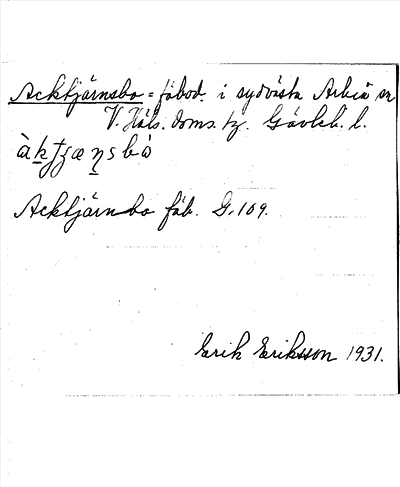 Acktjärnsbo = fäbod. i sydvästra Arbrå sn
V. Häls. doms. tg. Gävleb. l.
Acktjärnsbo fäb. G. 109.
Erik Eriksson 1931.